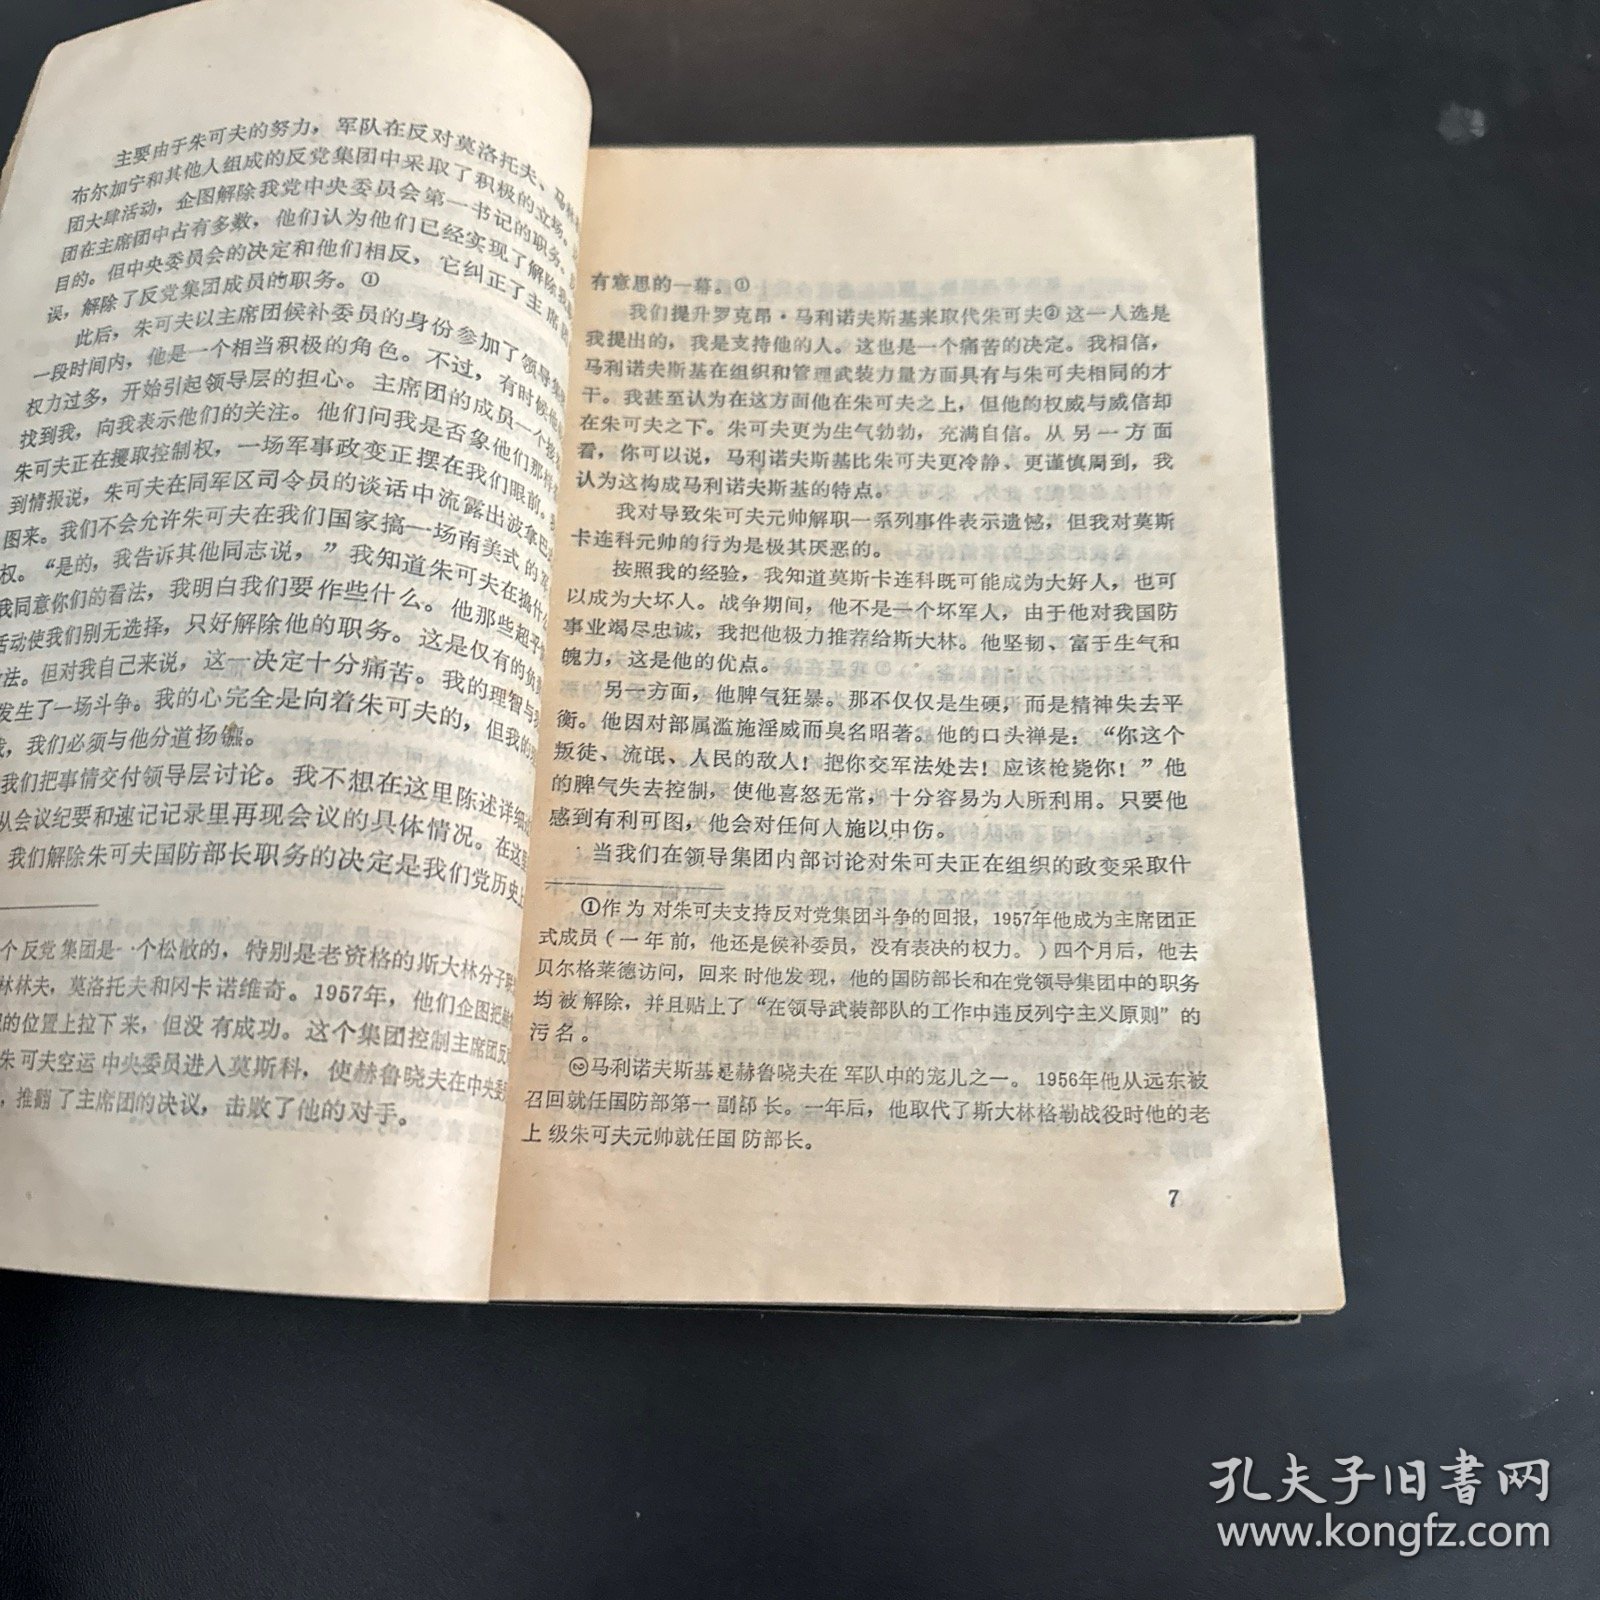 主要由于朱可夫的努力，军队在反对莫洛托夫、马林
布尔加宁和其他人组成的反党集团中采取了积极的立场。
团大肆活动，企图解除我党中央委员会第一书记的职务。
团在主席团中占有多数，他们认为他们已经实现了解除我
目的。但中央委员会的决定和他们相反，它纠正了主席团
误，解除了反党集团成员的职务。①
此后，朱可夫以主席团候补委员的身份参加了领导集
一段时间内，他是一个相当积极的角色。不过，有时候他
权力过多，开始引起领导层的担心。主席团的成员一个接
找到我，向我表示他们的关注。他们问我是否象他们那样
朱可夫正在攫取控制权，一场军事政变正摆在我们眼前。
到情报说，朱可夫在同军区司令员的谈话中流露出波拿巴
图来。我们不会允许朱可夫在我们国家搞一场南美式的军
权。“是的，我告诉其他同志说，”我知道朱可夫在搞什
我同意你们的看法，我明白我们要作些什么。他那些超乎
活动使我们别无选择，只好解除他的职务。这是仅有的
法。但对我自己来说，这一决定十分痛苦。我的理智与
发生了一场斗争。我的心完全是向着朱可夫的，但我的
我，我们必须与他分道扬镳。
我们把事情交付领导层讨论。我不想在这里陈述详细
从会议纪要和速记记录里再现会议的具体情况。在这里
我们解除朱可夫国防部长职务的决定是我们党历史上
个反党集团是一个松散的，特别是老资格的斯大林分子联
林林夫，莫洛托夫和冈卡诺维奇。1957年，他们企图把赫
的位置上拉下来，但没有成功。这个集团控制主席团反
朱可夫空运中央委员进入莫斯科，使赫鲁晓夫在中央委
，推翻了主席团的决议，击败了他的对手。
有意思的一幕。①
我们提升罗克昂·马利诺夫斯基来取代朱可夫②这一人选是
我提出的，我是支持他的人。这也是一个痛苦的决定。我相信，
马利诺夫斯基在组织和管理武装力量方面具有与朱可夫相同的才
干。我甚至认为在这方面他在朱可夫之上，但他的权威与威信却
在朱可夫之下。朱可夫更为生气勃勃，充满自信。从另一方面
看，你可以说，马利诺夫斯基比朱可夫更冷静、更谨慎周到，我
认为这构成马利诺夫斯基的特点。
我对导致朱可夫元帅解职一系列事件表示遗憾，但我对莫斯
卡连科元帅的行为是极其厌恶的。
按照我的经验，我知道莫斯卡连科既可能成为大好人，也可
以成为大坏人。战争期间，他不是一个坏军人，由于他对我国防
事业竭尽忠诚，我把他极力推荐给斯大林。他坚韧、富于生气和
魄力，这是他的优点。
另一方面，他脾气狂暴。那不仅仅是生硬，而是精神失去平
衡。他因对部属滥施淫威而臭名昭著。他的口头禅是：“你这个
叛徒、流氓、人民的敌人！把你交军法处去！应该枪毙你！”他
的脾气失去控制，使他喜怒无常，十分容易为人所利用。只要他
感到有利可图，他会对任何人施以中伤。
当我们在领导集团内部讨论对朱可夫正在组织的政变采取什
①作为对朱可夫支持反对党集团斗争的回报，1957年他成为主席团正
式成员（一年前，他还是候补委员，没有表决的权力。）四个月后，他去
贝尔格莱德访问，回来时他发现，他的国防部长和在党领导集团中的职务
均被解除，并且贴上了“在领导武装部队的工作中违反列宁主义原则”的
污名。
②马利诺夫斯基是赫鲁晓夫在军队中的宠儿之一。1956年他从远东被
召回就任国防部第一副部长。一年后，他取代了斯大林格勒战役时他的老
上级朱可夫元帅就任国防部长。
7
孔夫子旧书网
www.kongfz.com